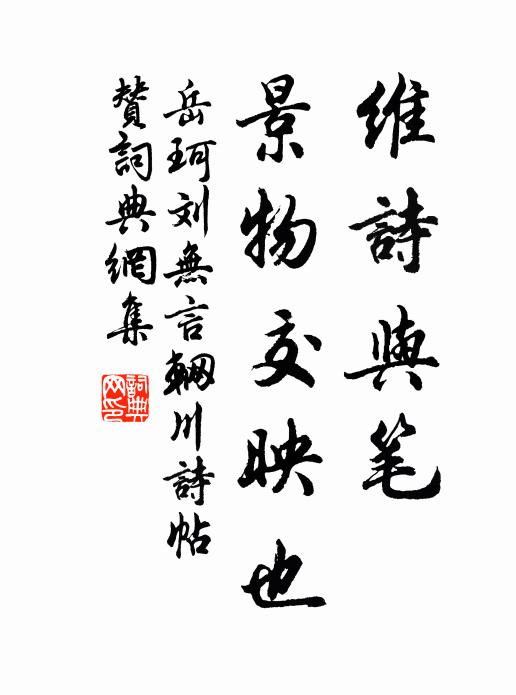 維詩與笔
景物交映也
岳珂刘無言輞川詩帖
赞詞典網集
詞典网印